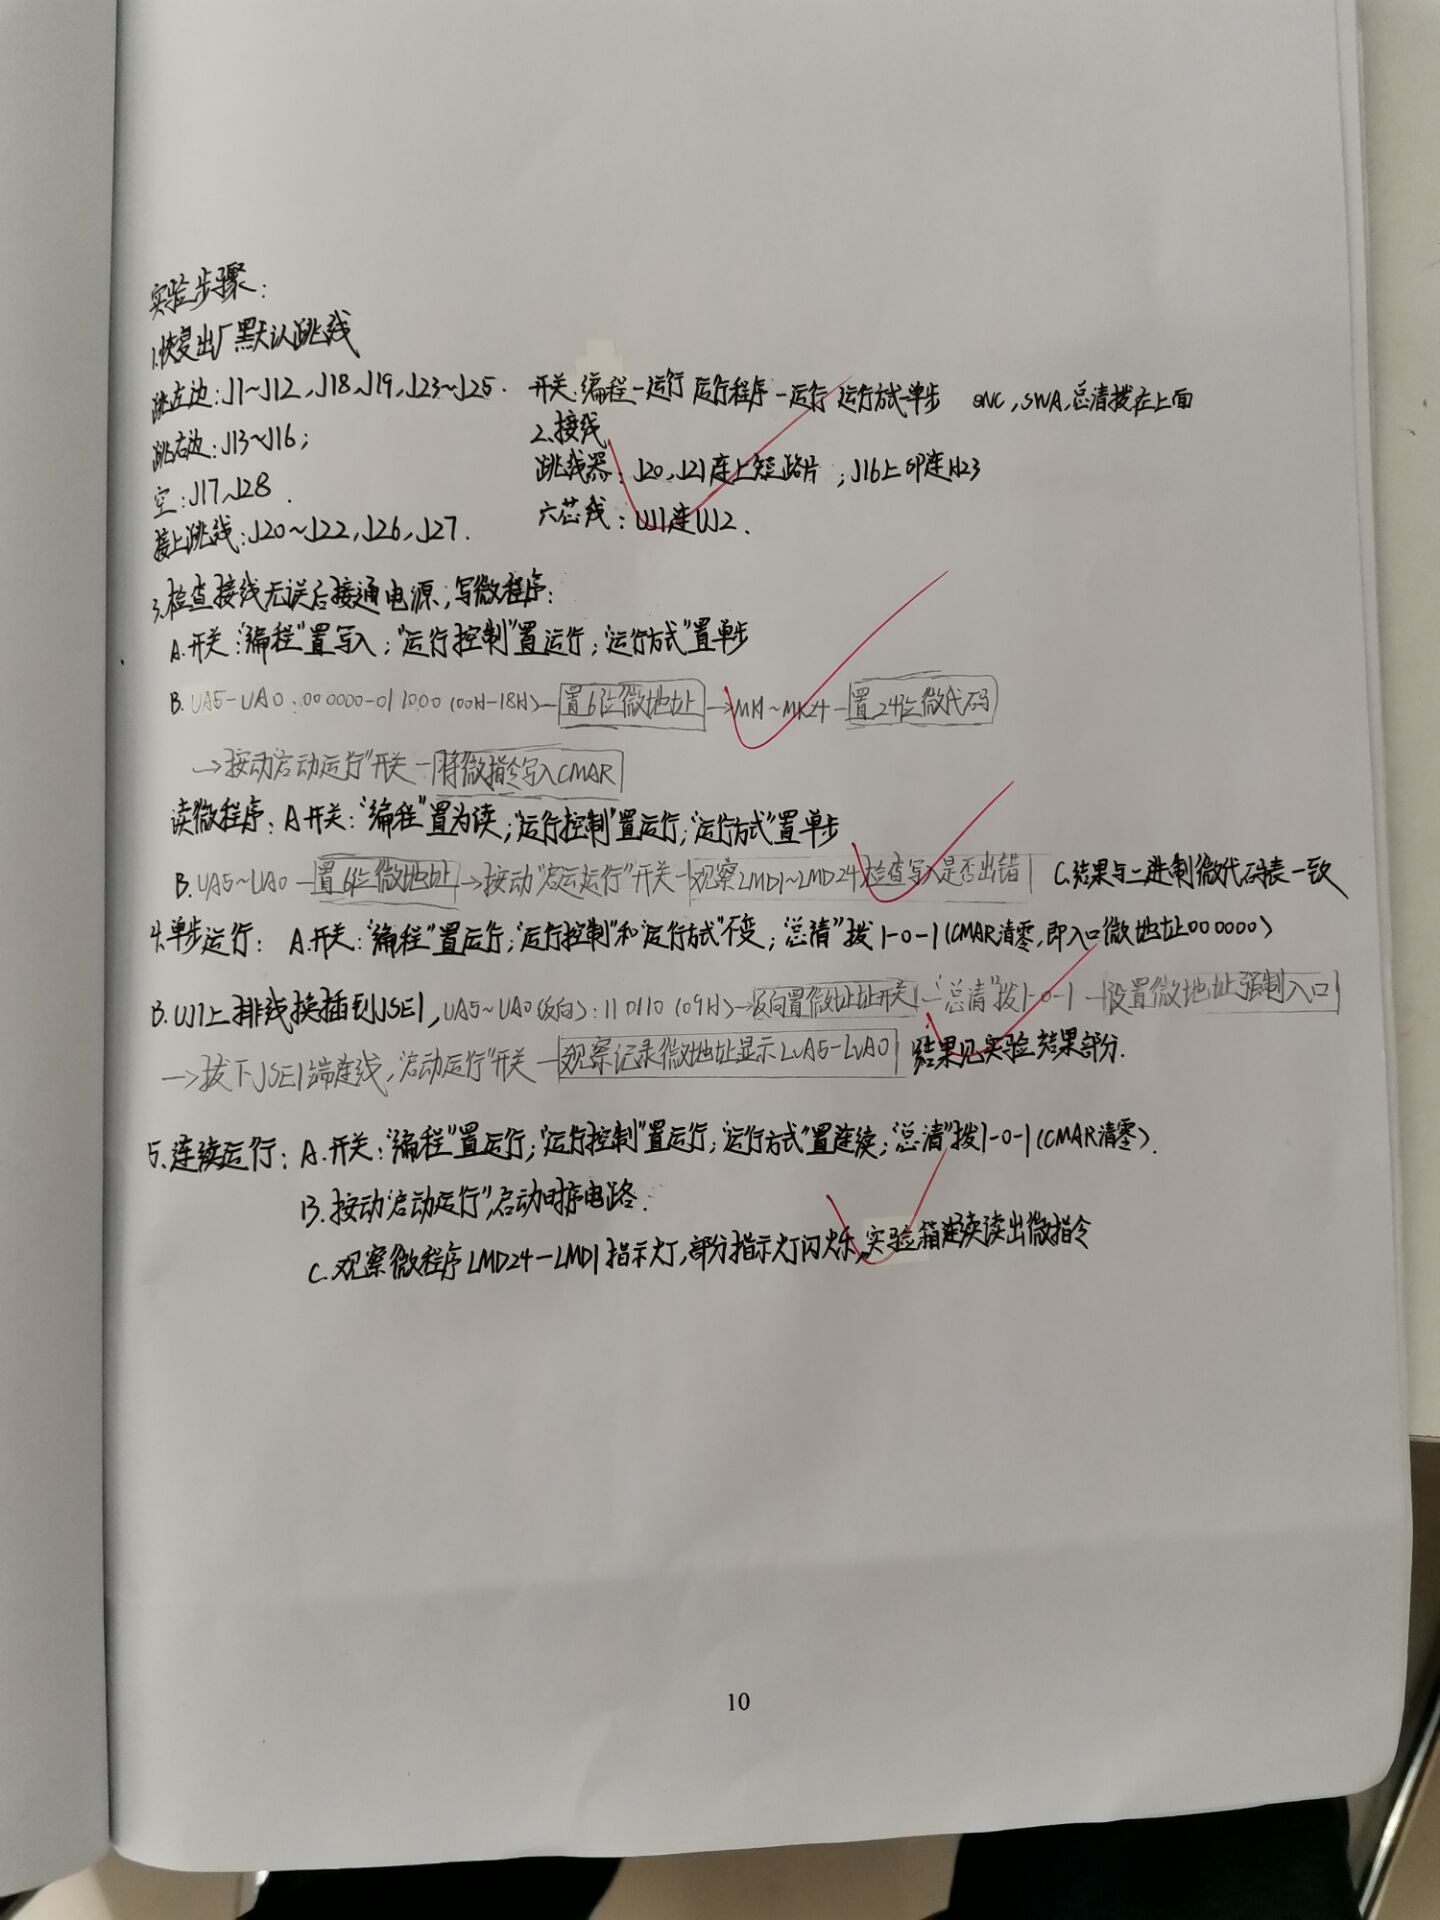 实验步骤：
1.恢复出厂默认跳线
跳左边：J1~J12，J18、J19，J23~J25. 开关：编程-运行 运行程序-运行 运行方式-单步 SWC，SWA，总清拨在上面
跳右边：J13~J16；
2.接线
空：J17、J28.
跳线器：J20、J21连上短路片；J16上 连H23
接上跳线：J20~J22，J26，J27.
六芯线：UJ1连UJ2.
3.检查接线无误后接通电源，写微程序：
A.开关：“编程”置写入；“运行控制”置运行；“运行方式”置单步
B.UA5-UA0：000000-011000(00H-18H)—置6位微地址→MK1~MK24—置24位微代码
→按动“启动运行”开关—将微指令写入CMAR
读微程序：A开关：“编程”置为读；“运行控制”置运行；“运行方式”置单步
B.UA5~UA0—置6位微地址→按动“启运运行”开关—观察LMD1~LMD24检查写入是否出错 C.结果与二进制微代码表一致
4.单步运行：A.开关：“编程”置运行；“运行控制”和“运行方式”不变；“总清”拨1-0-1(CMAR清零，即入口微地址000000)
B.UJ1上排线换插到JSE1，UA5~UA0(反向)：110110(09H)→反向置微地址址开关—“总清”拨1-0-1—设置微地址强制入口
→拔下JSE1端连线，“启动运行”开关—观察记录微地址显示LUA5-LUA0 结果见实验结果部分.
5.连续运行：A.开关：“编程”置运行；“运行控制”置运行；“运行方式”置连续；“总清”拨1-0-1(CMAR清零).
B.按动“启动运行”，启动时序电路.
C.观察微程序LMD24-LMD1指示灯，部分指示灯闪烁，实验箱连续读出微指令
10